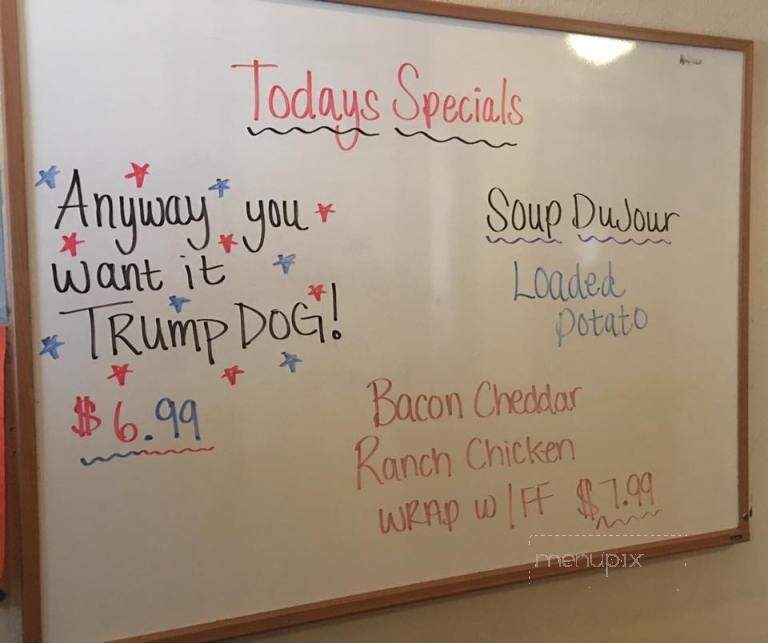 Todays Specials
Anyway you
want it
TRump DOG!
$6.99
Soup DuJour
Loaded
potato
Bacon Cheddar
Ranch Chicken
WRAP w/FF $7.99
menupix